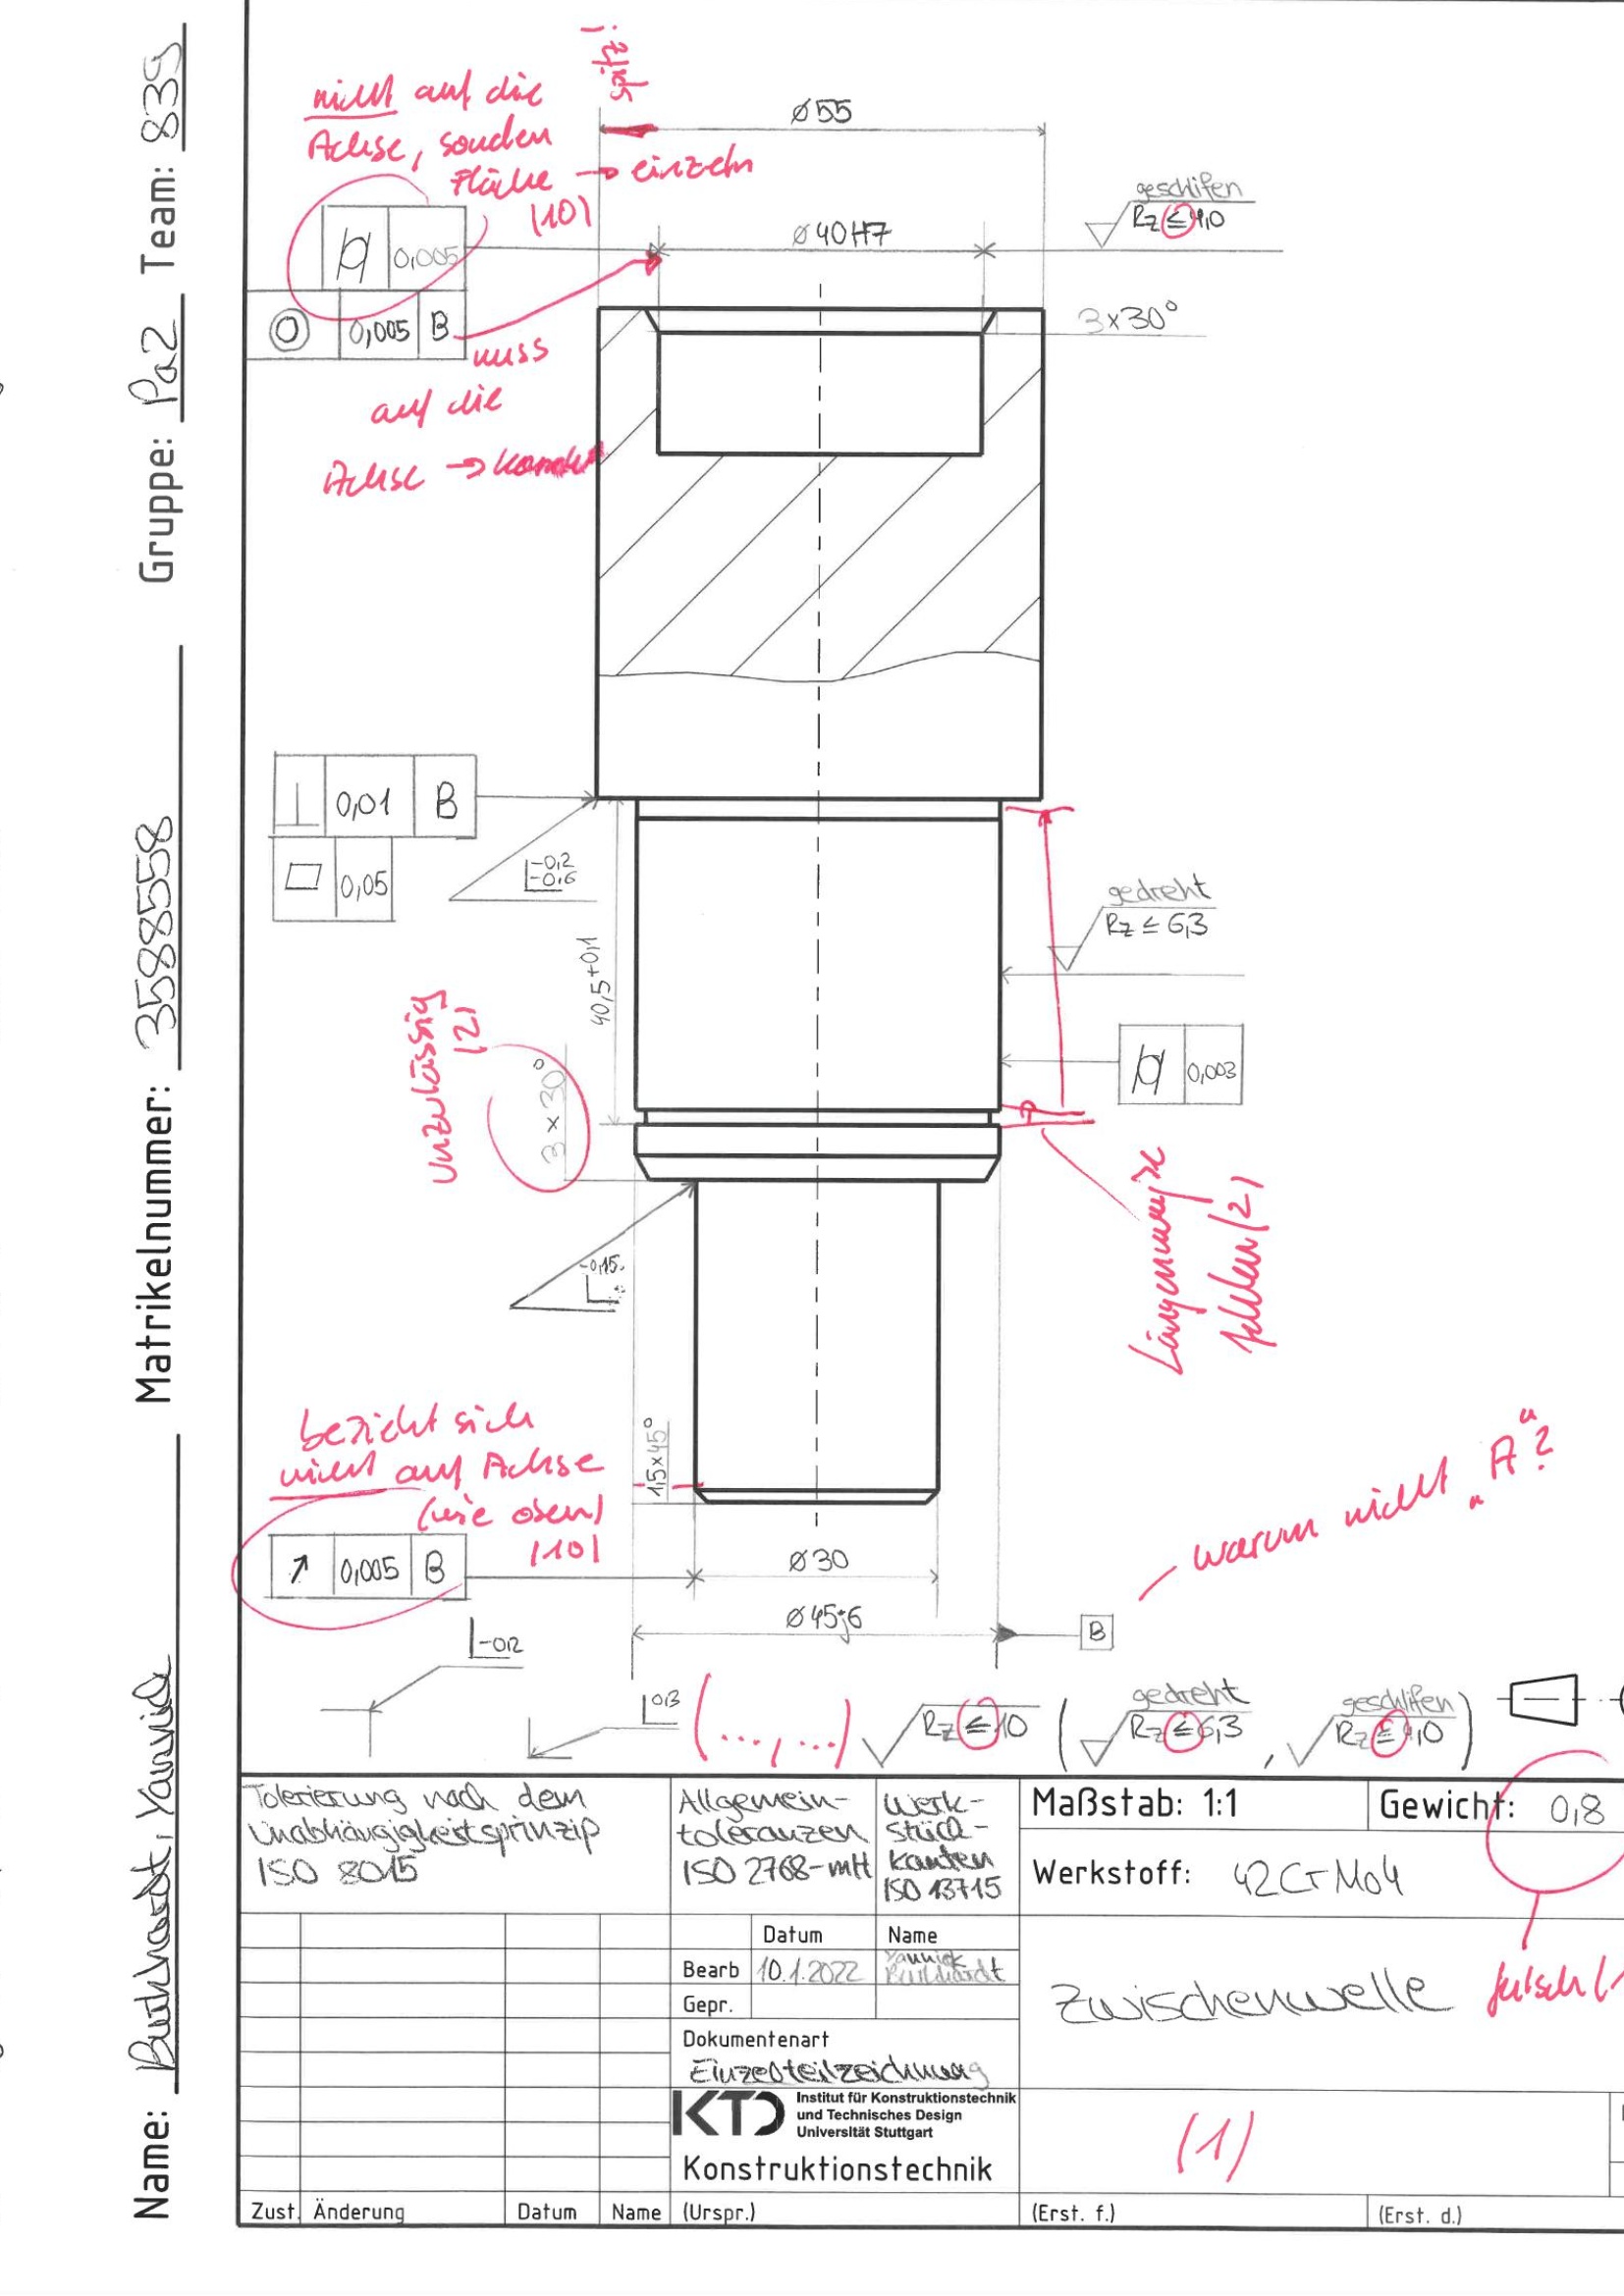 Name: Burkhardt, Yannick Matrikelnummer: 3588558 Gruppe: Pa2 Team: 839
spitz!
nicht auf die
Achse, sondern
Fläche → einzeln
(10)
0,005
0,005 B
muss
auf die
Achse →
Ø55
Ø40H7
geschlifen
Rz ≤ 4,0
3x30°
⊥ 0,01 B
0,05
-0,2
-0,6
40,5+0,1
gedreht
Rz ≤ 6,3
0,003
unzulässig
(2)
3 x 30°
Längenmaße
fehlen (2)
-0,15
1,5x45°
bezieht sich
nicht auf Achse
(wie oben)
(10)
↗ 0,005 B
Ø30
Ø45j6
B
warum nicht "A"?
-0,2
0,3
(..., ...)
Rz ≤ 10 ( gedreht Rz ≤ 6,3 , geschlifen Rz ≤ 4,0 )
Tolerierung nach dem
Unabhängigkeitsprinzip
ISO 8015
Allgemein-
toleranzen
ISO 2768-mH
Werk-
stück-
kanten
ISO 13715
Maßstab: 1:1
Gewicht: 0,8
Werkstoff: 42CrMo4
falsch (1
Datum Name
Bearb 10.1.2022 Yannick Burkhardt
Gepr.
Dokumentenart
Einzelteilzeichnung
Zwischenwelle
KTD
Institut für Konstruktionstechnik
und Technisches Design
Universität Stuttgart
Konstruktionstechnik
(1)
Zust. Änderung Datum Name (Urspr.) (Erst. f.) (Erst. d.)